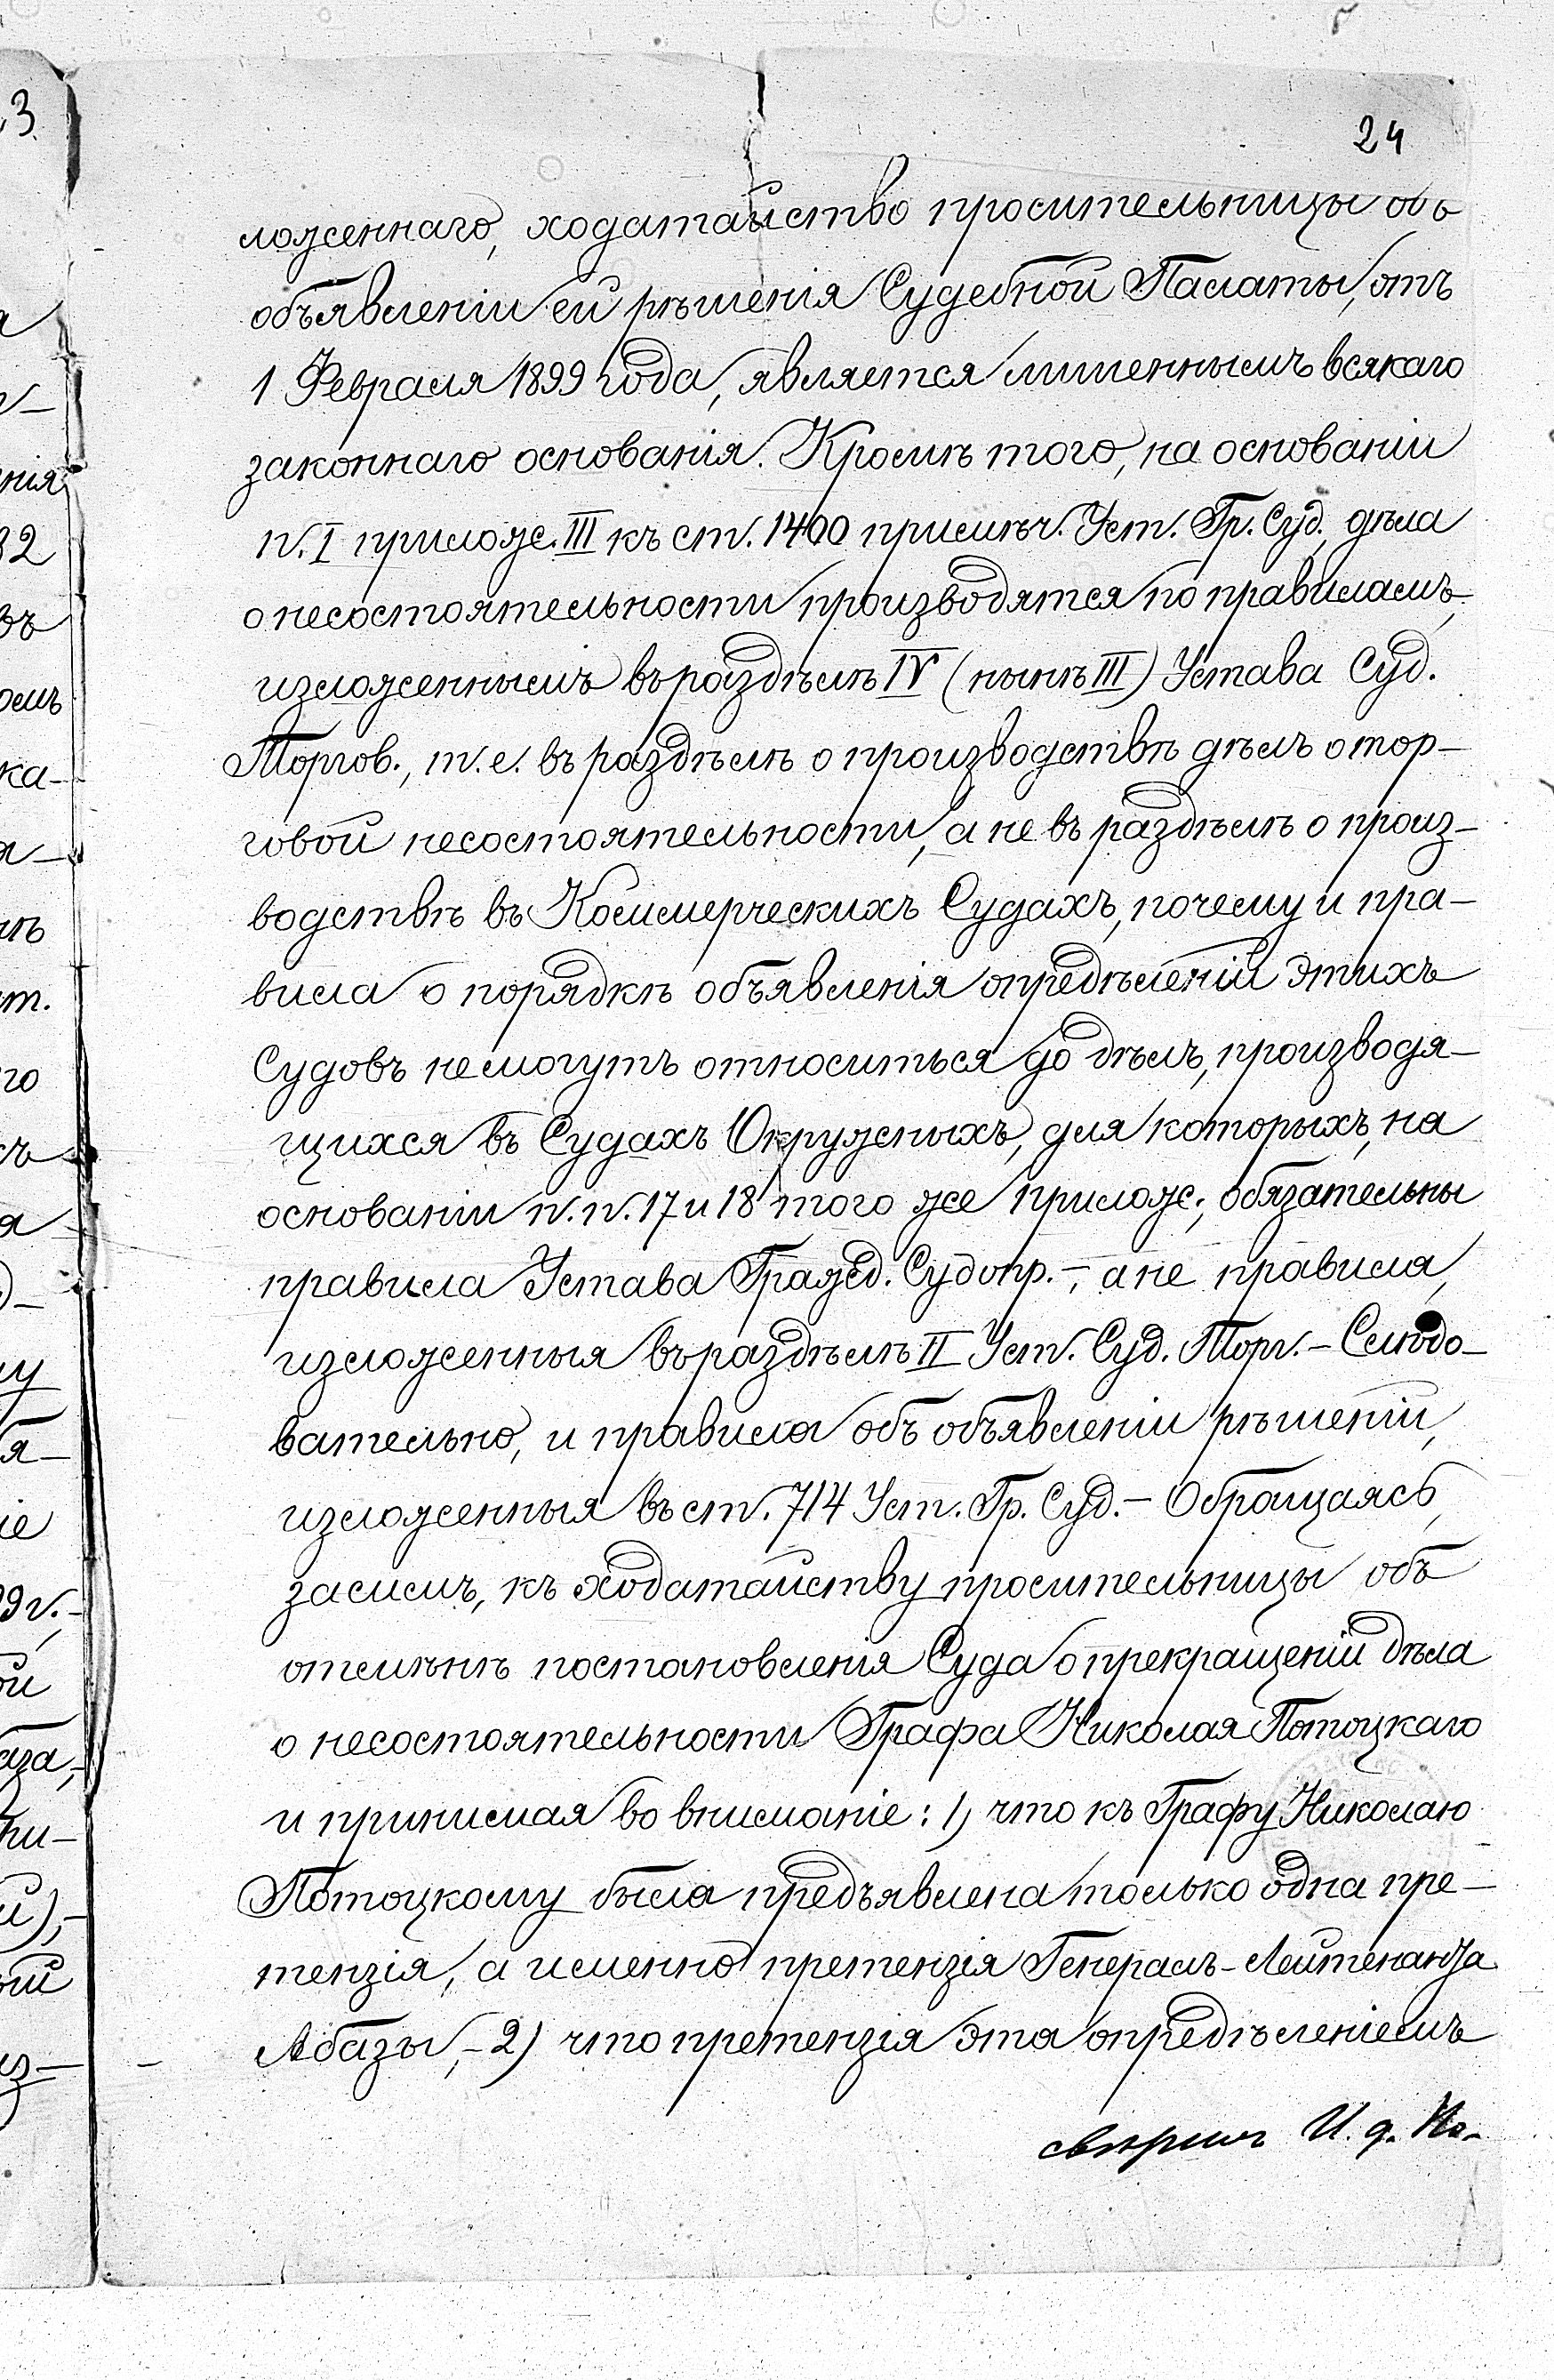 24
ложеннаго, ходатайство просительницы объ
объявленіи ей рѣшенія Судебной Палаты, отъ
1 Февраля 1899 года, является лишеннымъ всякаго
законнаго основанія. Кромѣ того, на основаніи
п. I прилож. III къ ст. 1400 примѣч. Уст. Гр. Суд., дѣла
о несостоятельности производятся по правиламъ,
изложеннымъ въ раздѣлѣ IV (нынѣ III) Устава Суд.
Торгов., т. е. въ раздѣлѣ о производствѣ дѣлъ о тор-
говой несостоятельности, а не въ раздѣлѣ о произ-
водствѣ въ Коммерческихъ Судахъ, почему и пра-
вила о порядкѣ объявленія опредѣленій этихъ
Судовъ не могутъ относиться до дѣлъ, производя-
щихся въ Судахъ Окружныхъ, для которыхъ, на
основаніи п. п. 17 и 18 того же прилож., обязательны
правила Устава Гражд. Судопр. -, а не правила,
изложенныя въ раздѣлѣ II Уст. Суд. Торг. - Слѣдо-
вательно, и правила объ объявленіи рѣшеній,
изложенныя въ ст. 714 Уст. Гр. Суд. - Обращаясь,
засимъ, къ ходатайству просительницы объ
отмѣнѣ постановленія Суда о прекращеніи дѣла
о несостоятельности Графа Николая Потоцкаго
и принимая во вниманіе: 1) что къ Графу Николаю
Потоцкому была предъявлена только одна пре-
тензія, а именно претензія Генералъ-Лейтенанта
Абазы, - 2) что претензія эта опредѣленіемъ
свѣрилъ И. д.